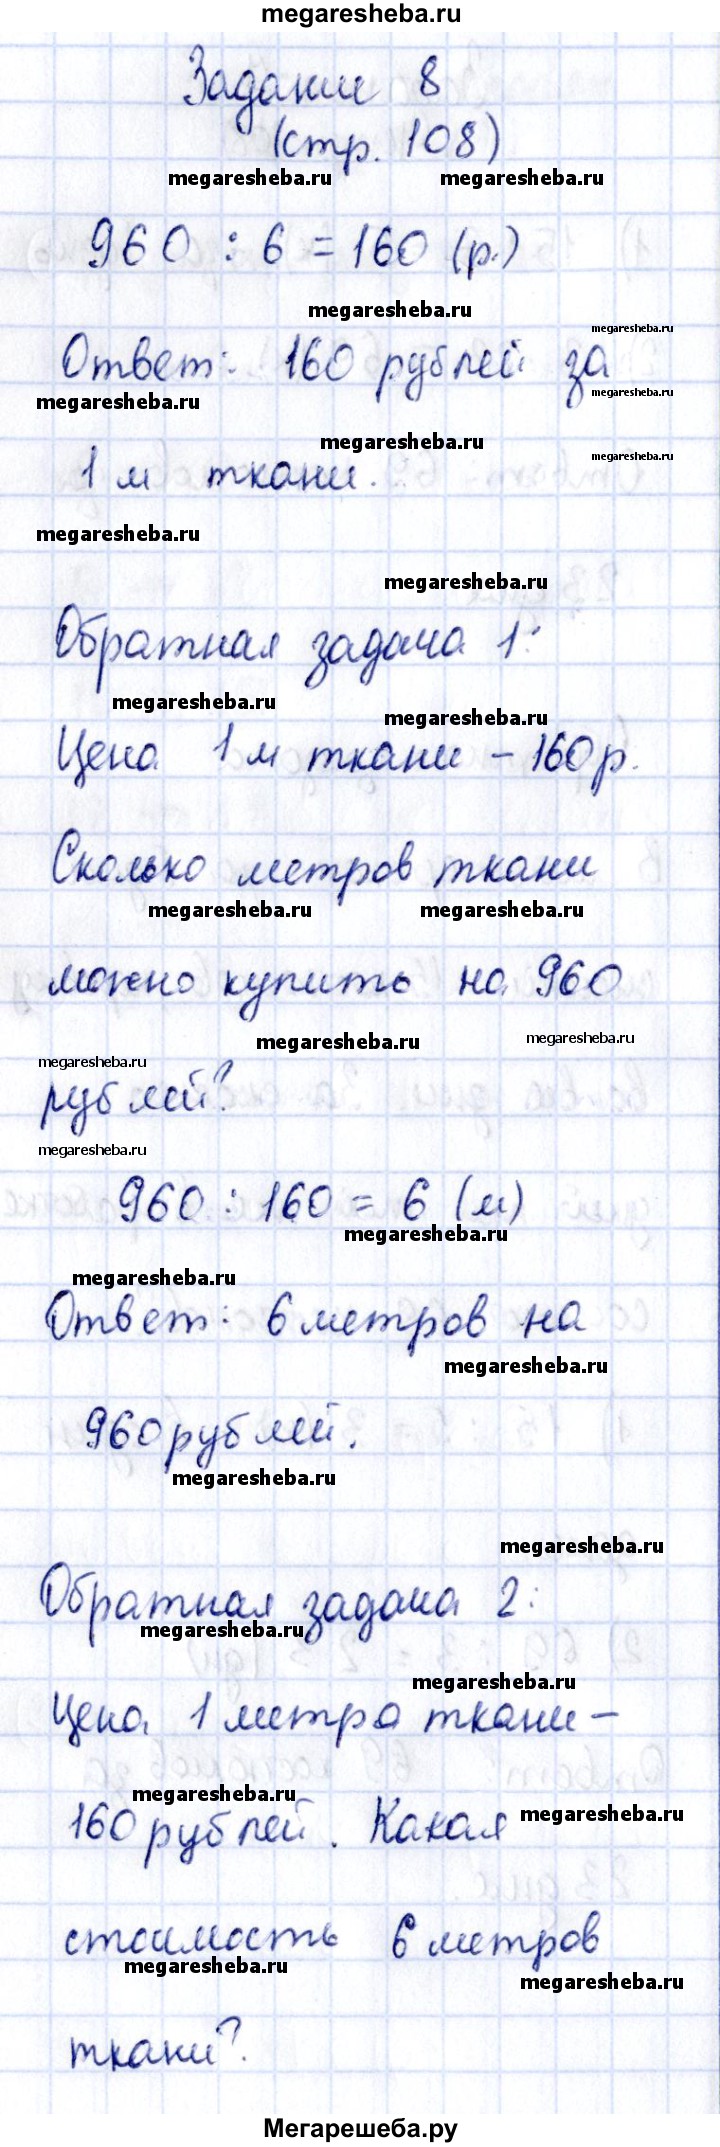 megaresheba.ru
Задание 8
(стр. 108)
megaresheba.ru megaresheba.ru
960 : 6 = 160 (р.)
megaresheba.ru
megaresheba.ru
Ответ: 160 рублей за
megaresheba.ru megaresheba.ru
megaresheba.ru
megaresheba.ru
1 м ткани.
megaresheba.ru
megaresheba.ru
Обратная задача 1:
megaresheba.ru
megaresheba.ru
Цена 1 м ткани - 160 р.
Сколько метров ткани
megaresheba.ru megaresheba.ru
можно купить на 960
megaresheba.ru megaresheba.ru
megaresheba.ru
рублей?
megaresheba.ru
960 : 160 = 6 (м)
megaresheba.ru
megaresheba.ru
Ответ: 6 метров на
megaresheba.ru
960 рублей.
megaresheba.ru
megaresheba.ru
Обратная задача 2:
megaresheba.ru
megaresheba.ru
Цена 1 метра ткани -
megaresheba.ru
160 рублей. Какая
megaresheba.ru
стоимость 6 метров
megaresheba.ru
megaresheba.ru
ткани?
Мегарешеба.ру